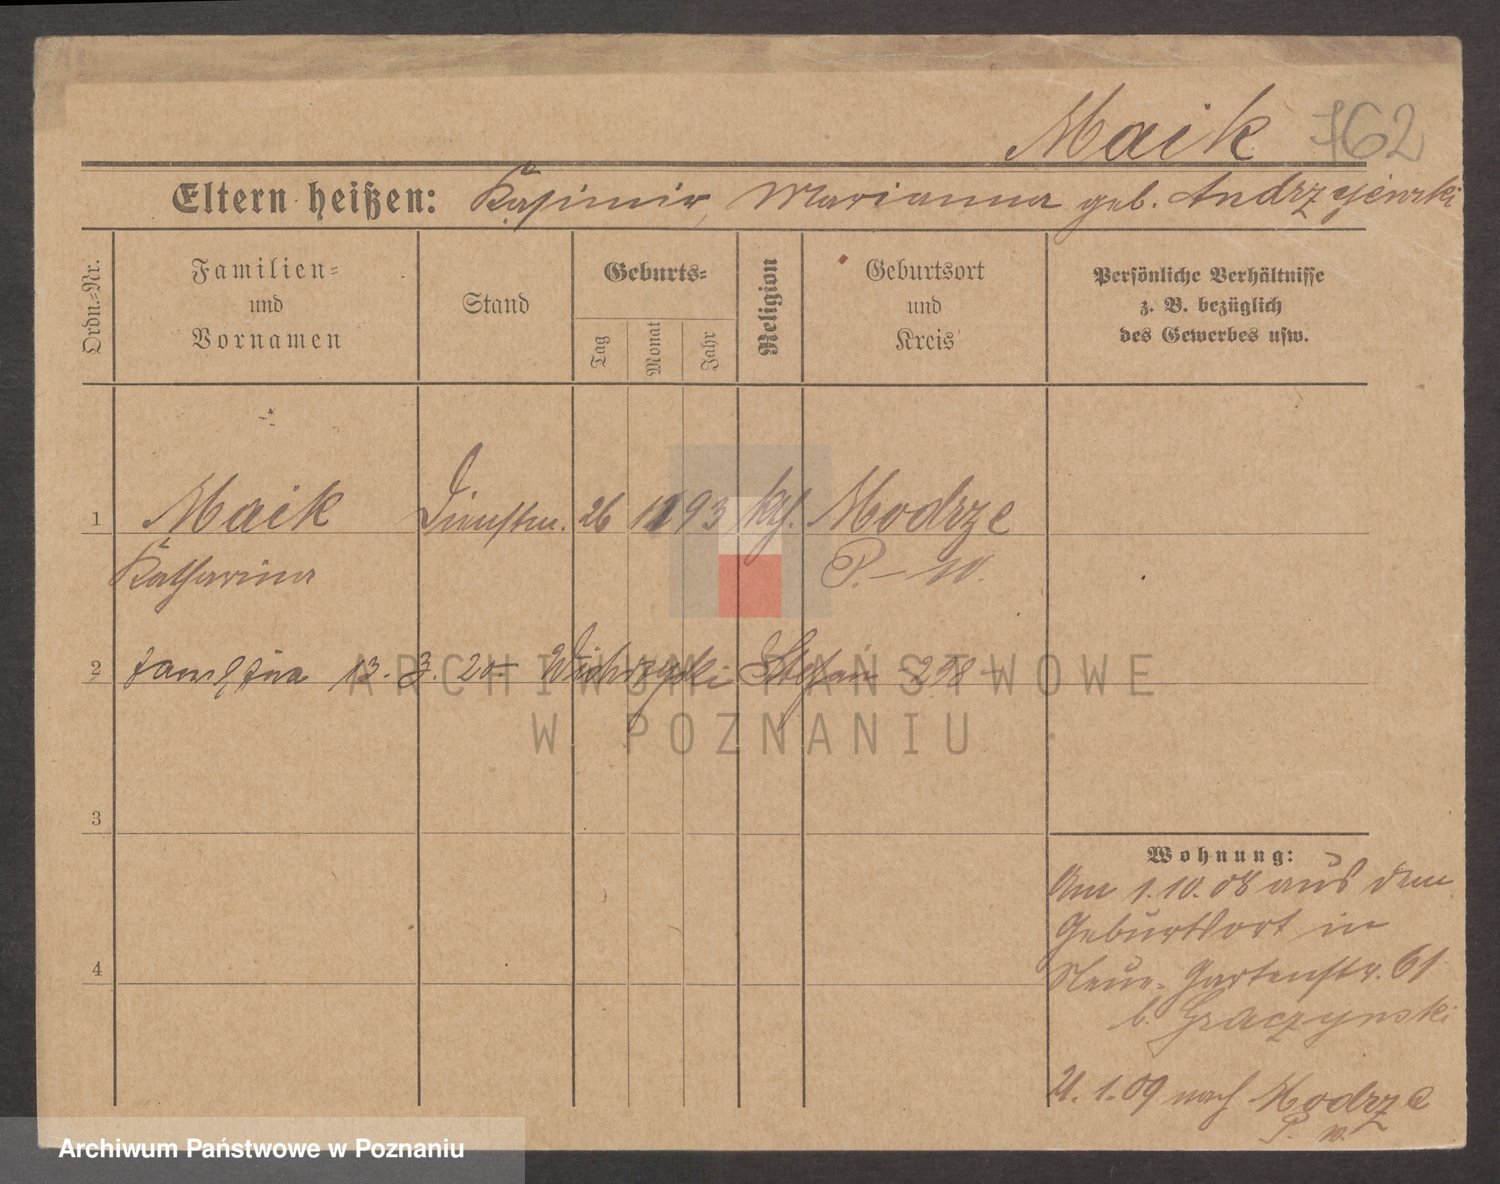 Maik 762
Eltern heißen: Kasimir, Marianna geb. Andrzejewski
Ordn.-Nr.
Familien-
und
Vornamen
Stand
Geburts-
Tag
Monat
Jahr
Religion
Geburtsort
und
Kreis
Persönliche Verhältnisse
z. B. bezüglich
des Gewerbes usw.
1 Maik Dienstm. 26 93 kth. Modrze
Katharina P. - W.
2 13. 3. 20 Stefan 298
ARCHIWUM PAŃSTWOWE
W POZNANIU
3
4
Wohnung:
Am 1.10.08 aus dem
Geburtsort in
Neue-Gartenstr. 61
b. Graczynski
21. 1. 09 nach Modrze
P. W.
Archiwum Państwowe w Poznaniu